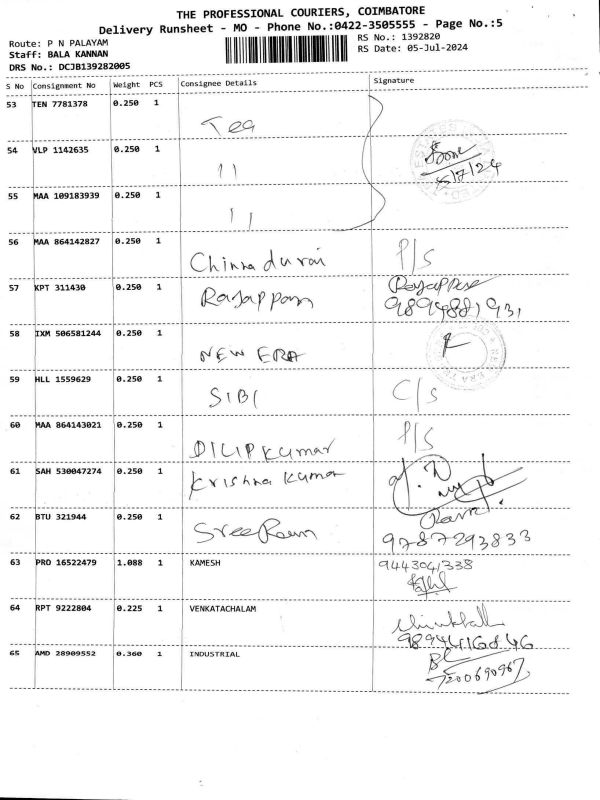 THE PROFESSIONAL COURIERS, COIMBATORE
Delivery Runsheet - MO - Phone No.:0422-3505555 - Page No.:5
Route: P N PALAYAM
RS No.: 1392820
Staff: BALA KANNAN
RS Date: 05-Jul-2024
DRS No.: DCJB139282005
S No Consignment No Weight PCS Consignee Details Signature
53 TEN 7781378 0.250 1
Tea
54 VLP 1142635 0.250 1
11
5/7/24
55 MAA 109183939 0.250 1
11
56 MAA 864142827 0.250 1
Chinnadurai P/S
57 KPT 311430 0.250 1
Rajappan Rajappan
9894881931
58 IXM 506581244 0.250 1
NEW ERA
59 HLL 1559629 0.250 1
SIBI C/S
60 MAA 864143021 0.250 1
DILIPKumar P/S
61 SAH 530047274 0.250 1
Krishna Kumar
62 BTU 321944 0.250 1
SreeRam Ram
9787293833
63 PRO 16522479 1.088 1 KAMESH
9443041338
64 RPT 9222804 0.225 1 VENKATACHALAM
9894416846
65 AMD 28909552 0.360 1 INDUSTRIAL
7200690967